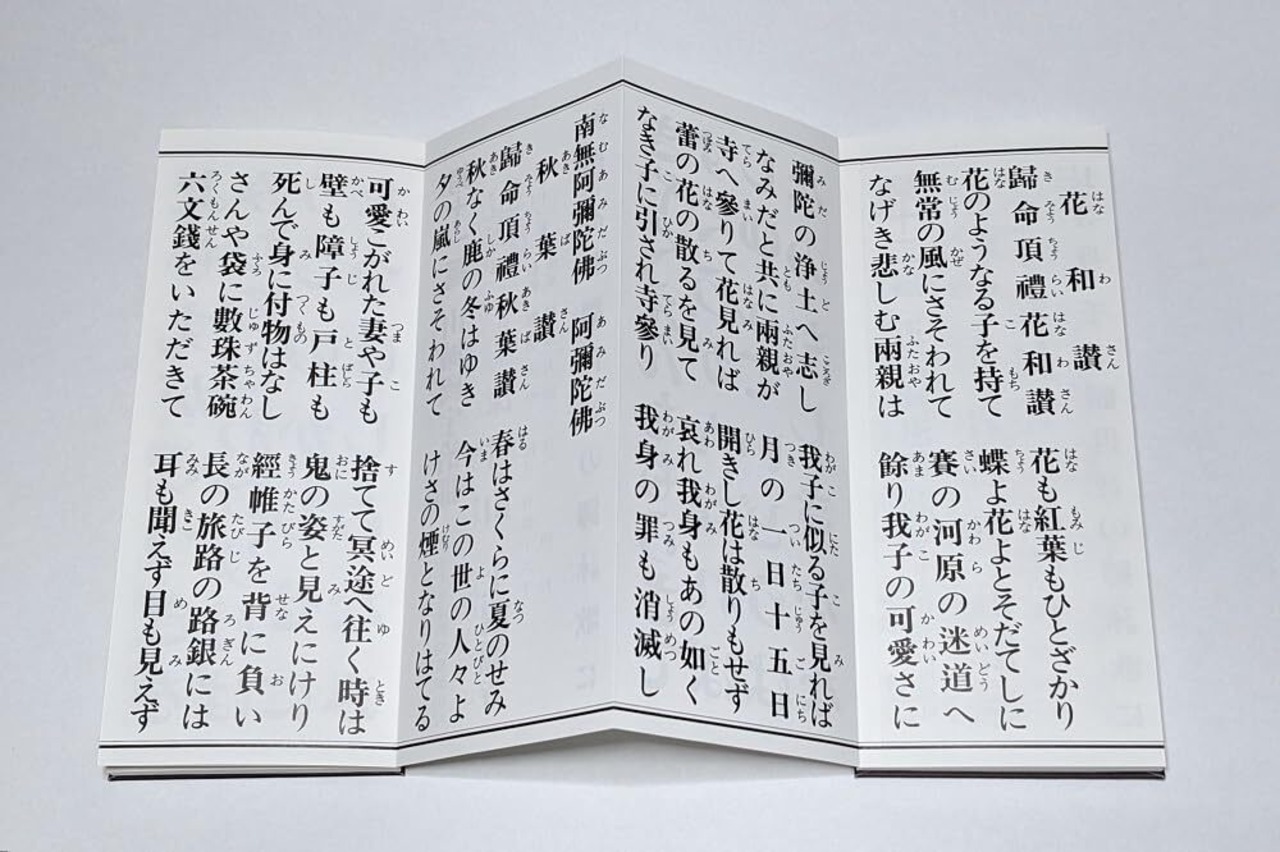 花和讃
歸命頂禮花和讃 花も紅葉もひとざかり
花のようなる子を持て 蝶よ花よとそだてしに
無常の風にさそわれて 賽の河原の迷道へ
なげき悲しむ兩親は 餘り我子の可愛さに
彌陀の浄土へ志し 我子に似る子を見れば
なみだと共に兩親が 月の一日十五日
寺へ參りて花見れば 開きし花は散りもせず
蕾の花の散るを見て 哀れ我身もあの如く
なき子に引され寺參り 我身の罪も消滅し
南無阿彌陀佛 阿彌陀佛
秋葉讃
歸命頂禮秋葉讃 春はさくらに夏のせみ
秋なく鹿の冬はゆき 今はこの世の人々よ
夕の嵐にさそわれて けさの煙となりはてる
可愛こがれた妻や子も 捨てて冥途へ往く時は
壁も障子も戸柱も 鬼の姿と見えにけり
死んで身に付物はなし 經帷子を背に負い
さんや袋に數珠茶碗 長の旅路の路銀には
六文錢をいただきて 耳も聞えず目も見えず